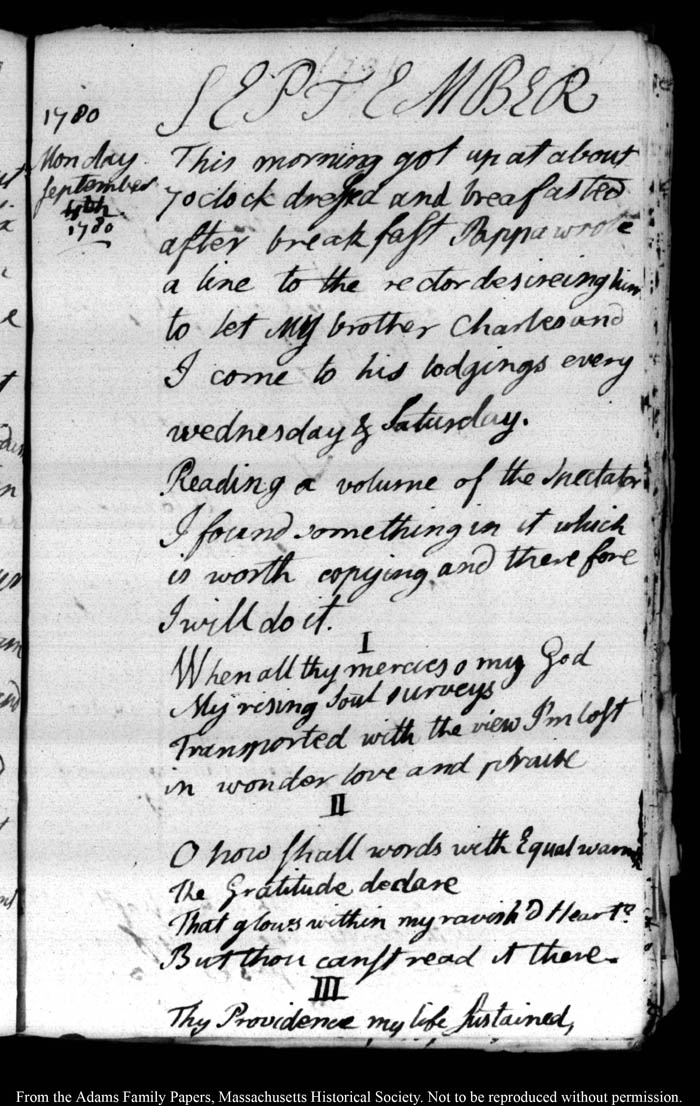 SEPTEMBER
1780
Monday
September
1780
This morning got up at about
7 oclock dressd and breafasted
after breakfast Pappa wrote
a line to the rector desireing him
to let my brother Charles and
I come to his lodgings every
wednesday & Saturday.
Reading a volume of the Spectator
I found something in it which
is worth copying and therefore
I will do it.
I
When all thy mercies o my God
My rising Soul surveys
Transported with the view I'm lost
in wonder love and praise
II
O how shall words with Equal warmth
The Gratitude declare
That glows within my ravish'd Heart?
But thou canst read it there.
III
Thy Providence my life Sustained,
From the Adams Family Papers, Massachusetts Historical Society. Not to be reproduced without permission.